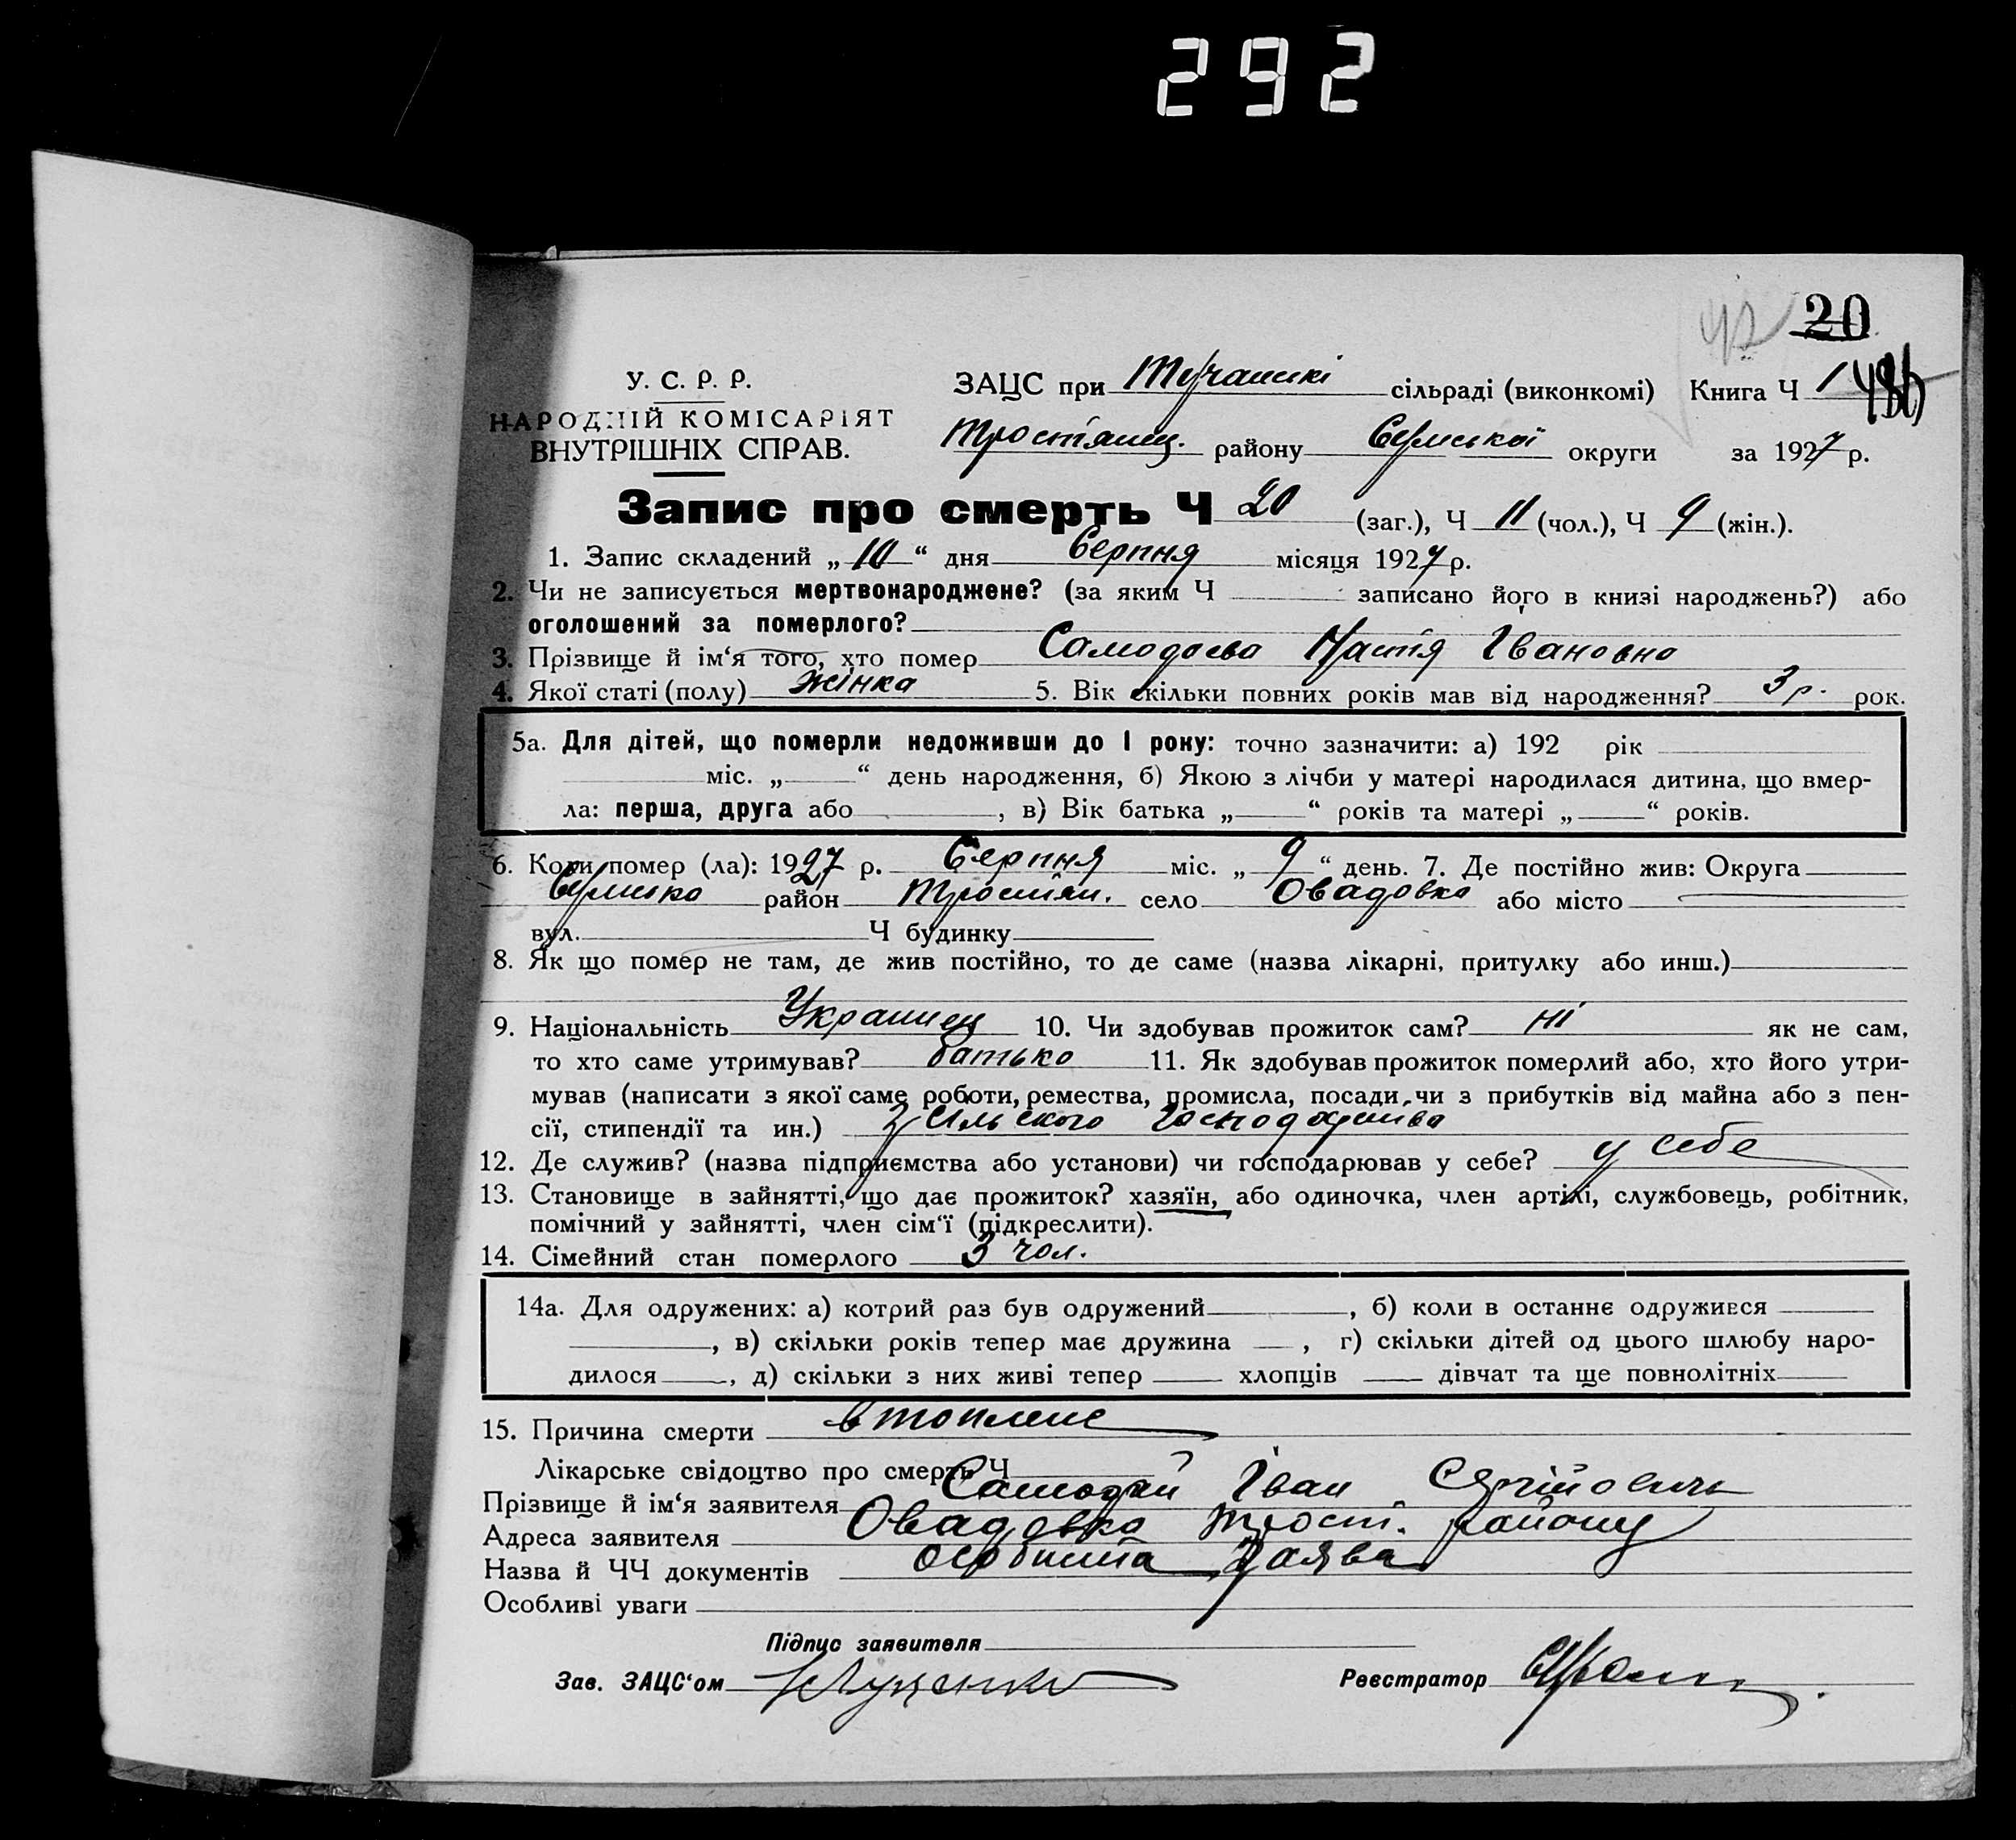 292
20
У. С. Р. Р.
НАРОДНІЙ КОМІСАРІЯТ
ВНУТРІШНІХ СПРАВ.
ЗАЦС при Тучанскі сільраді (виконкомі) Книга Ч 1
Тростянец. району Сумської округи за 1927 р.
Запис про смерть Ч 20 (заг.), Ч 11 (чол.), Ч 9 (жін.).
1. Запис складений „10“ дня Серпня місяця 1927 р.
2. Чи не записується мертвонароджене? (за яким Ч записано його в книзі народжень?) або
оголошений за померлого?
3. Прізвище й ім‘я того, хто помер Самодаєва Настя Івановна
4. Якої статі (полу) жінка 5. Вік скільки повних років мав від народження? 3 р. рок.
5а. Для дітей, що померли недоживши до 1 року: точно зазначити: а) 192 рік
міс. „ “ день народження, б) Якою з лічби у матері народилася дитина, що вмер-
ла: перша, друга або , в) Вік батька „ “ років та матері „ “ років.
6. Коли помер (ла): 1927 р. Серпня міс. „9“ день. 7. Де постійно жив: Округа
Сумська район Тростян. село Овадовка або місто
вул. Ч будинку
8. Як що помер не там, де жив постійно, то де саме (назва лікарні, притулку або инш.)
9. Національність Украинец 10. Чи здобував прожиток сам? ні як не сам,
то хто саме утримував? батько 11. Як здобував прожиток померлий або, хто його утри-
мував (написати з якої саме роботи, ремества, промисла, посади, чи з прибутків від майна або з пен-
сії, стипендії та ин.) з сільского господарства
12. Де служив? (назва підприємства або установи) чи господарював у себе? у себе
13. Становище в зайнятті, що дає прожиток? хазяїн, або одиночка, член артілі, службовець, робітник,
помічний у зайнятті, член сім‘ї (підкреслити).
14. Сімейний стан померлого 3 чол.
14а. Для одружених: а) котрий раз був одружений , б) коли в останнє одружився
, в) скільки років тепер має дружина , г) скільки дітей од цього шлюбу наро-
дилося , д) скільки з них живі тепер хлопців дівчат та ще повнолітніх
15. Причина смерти втоплене
Лікарське свідоцтво про смерть Ч
Прізвище й ім‘я заявителя Самодай Іван Сергійович
Адреса заявителя Овадовка Трост. району
Назва й ЧЧ документів особиста заява
Особливі уваги
Підпис заявителя
Зав. ЗАЦС‘ом Луценко Реєстратор